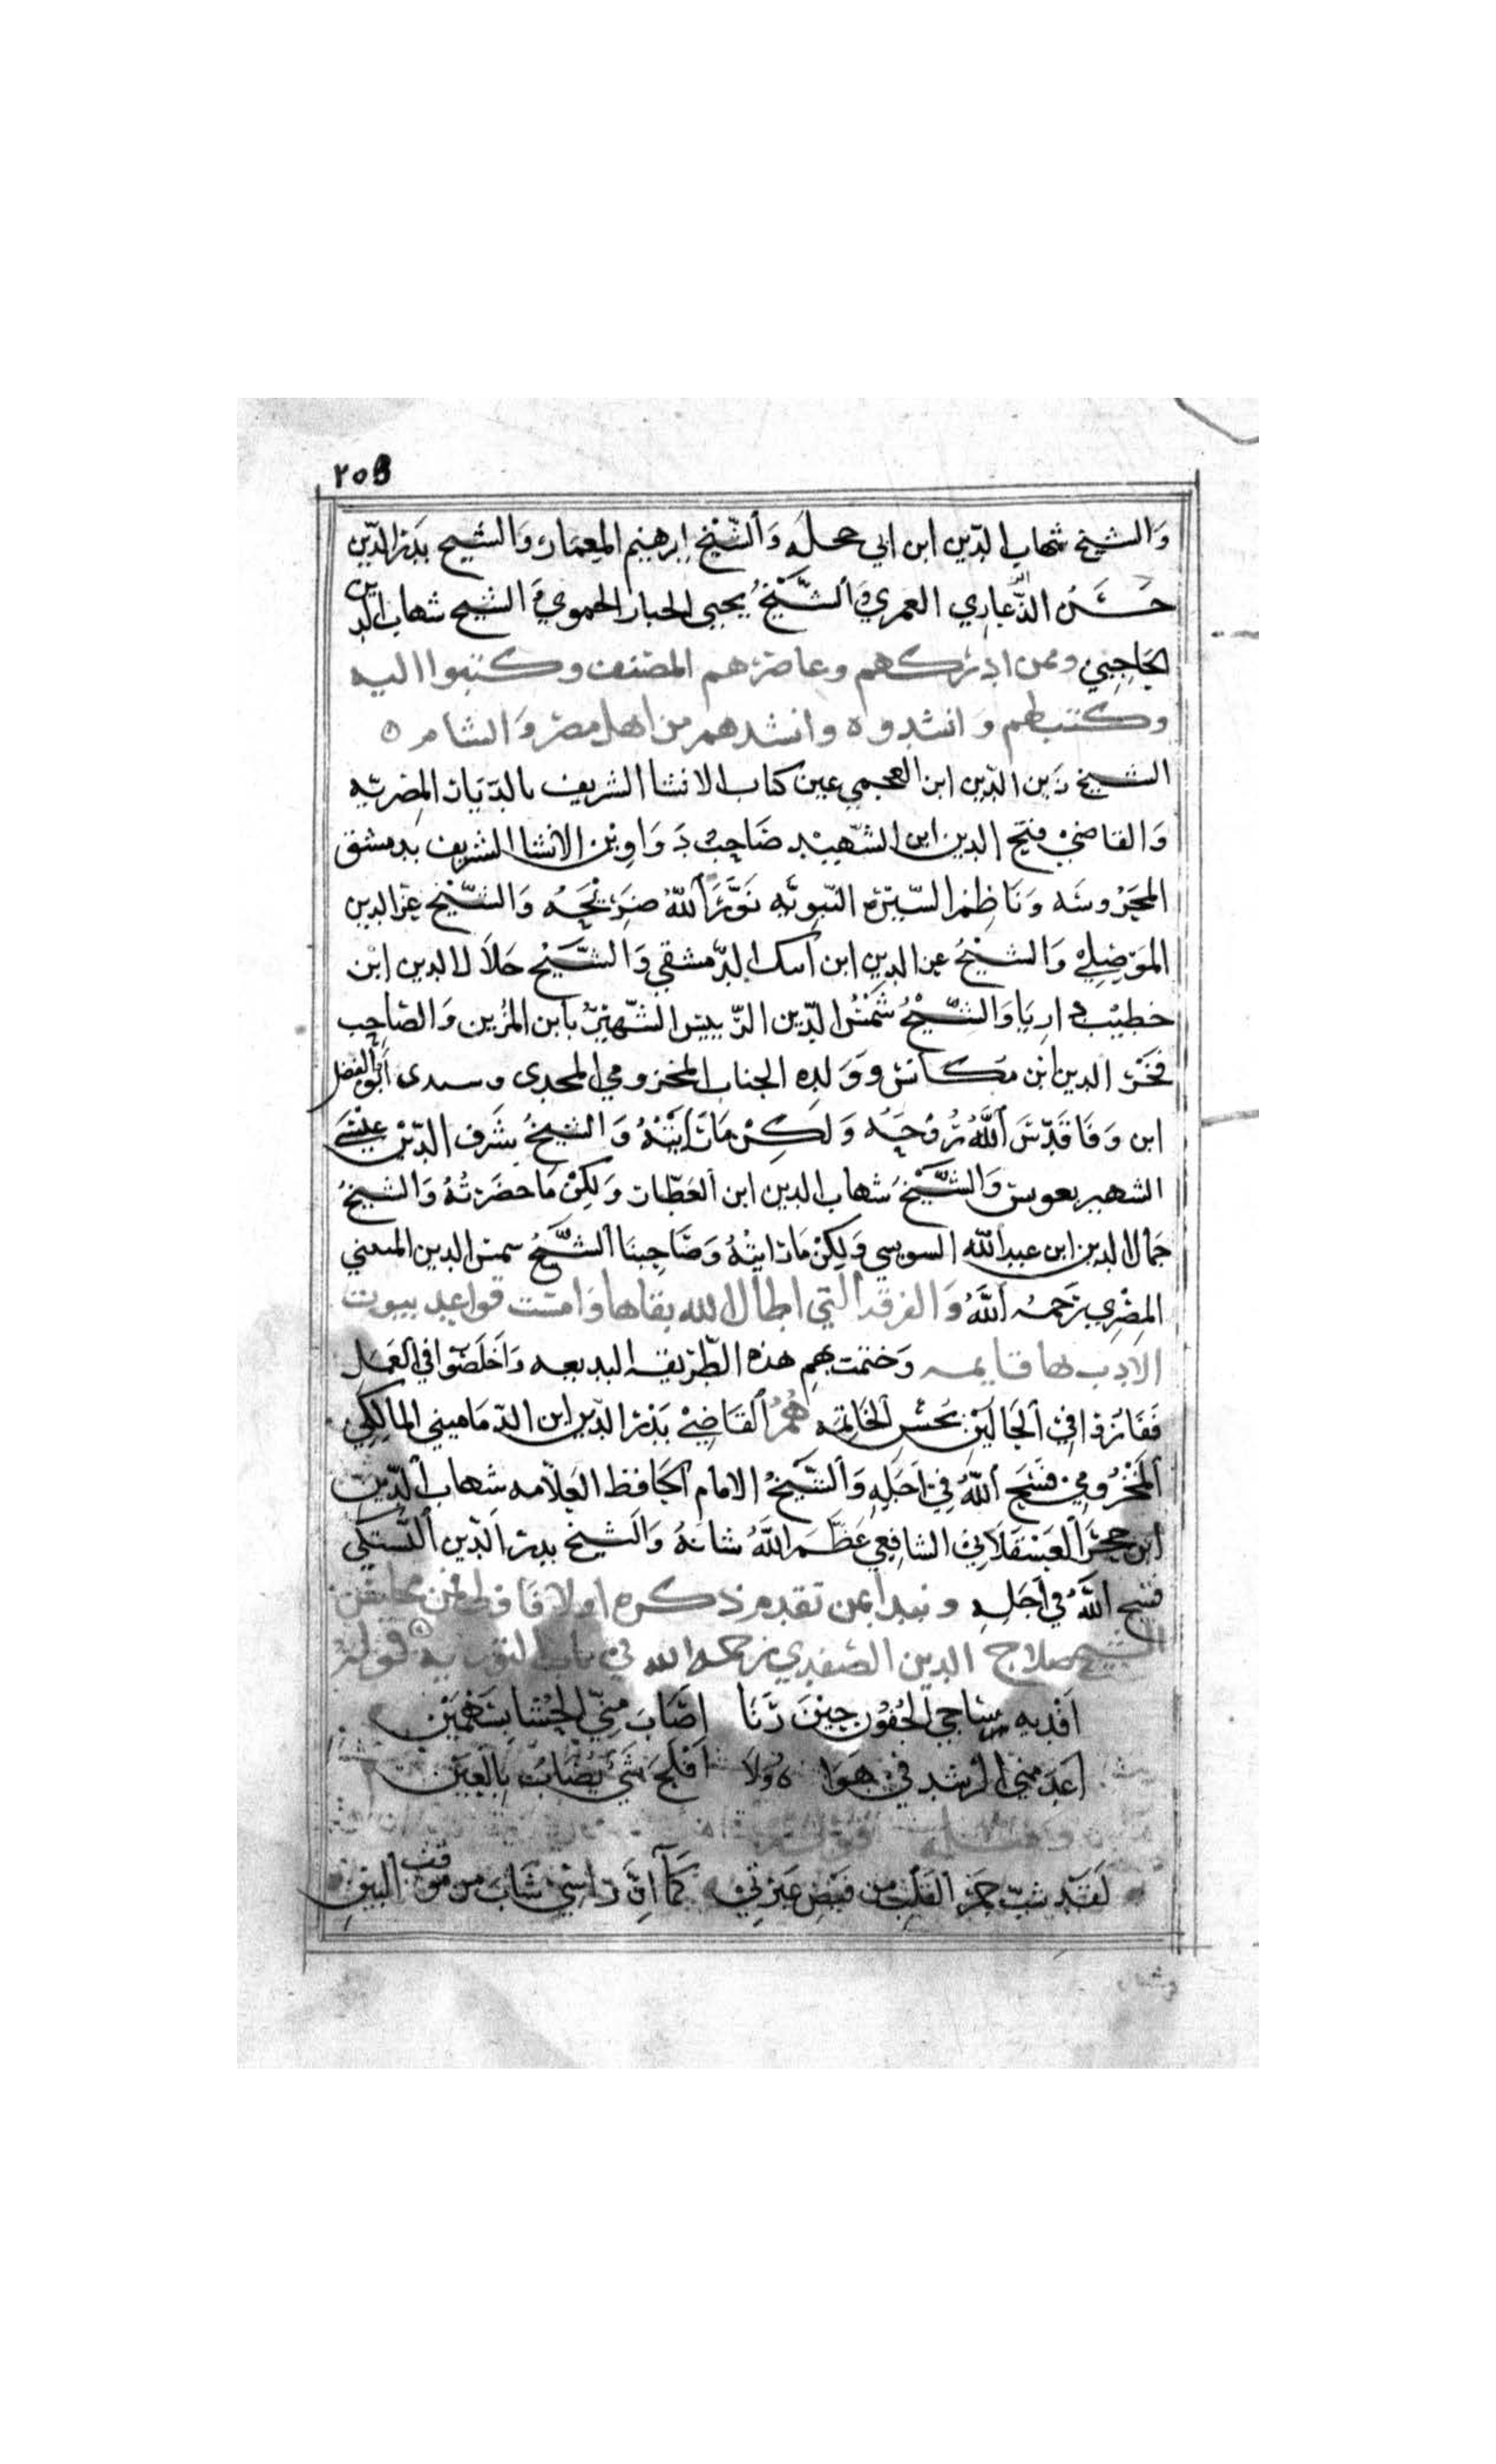 ٢٥٥
وَالشيخ شهاب الدّين ابن ابي حجله وَالشّيخ ابرهيم المِعمار وَالشيخ بَدر الدّين
حَسَن الزّغاري العمري وَالشَّيْخُ يحيى الخباز الحموي وَالشيخ شهاب الدين
الحَاجِبي وممن ادركهم وعاصرهم المصنف وكتبوا اليه
وكتب لهم وَانشدوه وانشدهم من اهل مصر وَالشام ه
الشيخ زَين الدّين ابن العجمي عين كتاب الانشا الشريف بالدّيَار المِصْريّه
وَالقاضي فتح الدين ابن الشّهِيْد صَاحِبُ دَوَاوِيْن الانشا الشريف بدمشق
المحرُوسَه وَنَاظِم السّيْرة النّبويّه نَوَّرَ اللّهُ ضرَيْحَهُ وَالشّيْخ عز الدين
الموَصِلي وَالشيْخُ عز الدين ابن اسك الدّمشقي وَالشّيْخ جَلاَل الدين ابْن
خطيْب داريَا وَالشّيْخُ شَمْسُ الدّين الرّييس الشّهيْرُ بابن المُزين وَالصَاحِب
فخَر الدين ابْن مكانس وَوَلده الجناب المخزومي المجدى وسيدى أبو الفضل
ابن وَفَا قَدّسَ اللَّهُ رُوْحَهُ وَلَكِنْ مَا رَايْتُهُ وَالشيخُ شَرف الدّيْن عيْسَى
الشهير بعويس وَالشَّيْخُ شهاب الدين ابن العَطّار وَلكِنْ مَا حضَرْتُهُ وَالشيخُ
جَمال الدين ابن عبد اللّه السوسي وَلكِنْ مَا رَايتُهُ وَصَاحِبنَا الشَّيْخُ شمس الدين المتيني
المِصْرِي رَحَمهُ اللَّهُ وَالفرقه التي اطال الله بقاها وَامست قواعد بيوت
الادب بها قايمه وَختمت بهم هذه الطّريقه البديعه وَاخَلصَوا في العَمَل
فَفَازوْا في الحَاليْن بحُسْن الخاتمه هُمُ القَاضِيْ بَدْر الدّين ابن الدّمَاميني المالكِي
المَخْزُومي فسَح اللّهُ في اجَلِهِ وَالشَّيْخُ الامام الحَافِظ العَلاّمه شِهاب الدّين
ابن حجَر العَسْقَلاَني الشافِعي عَظّمَ اللَّهُ شانهُ وَالشيخ بدر الدّين البَشتكي
فسح اللَّهُ في أجَلِهِ ونبدا بمن تقدم ذكره اولا فاولا فمن محاسن
الشيخ صلاح الدين الصّفدي رحمه الله في باب التورية قوله
اَفْديهِ سَاجي الجُفوْن حِيْنَ رَنَا اصَابَ مِنّي الحَشَا بسَهْمَيْن
اَعدَمَني الرشد في هَوَاهُ وَلاَ افْلحَ شَيْ يُصَابُ بِالعَيْن
ومثله قوله
لَقَد شبّ جَمر القَلْب من فَيْض عَبْرَتي كَمَا انّ رَاسِي شَابَ من مَوقف البَينِ